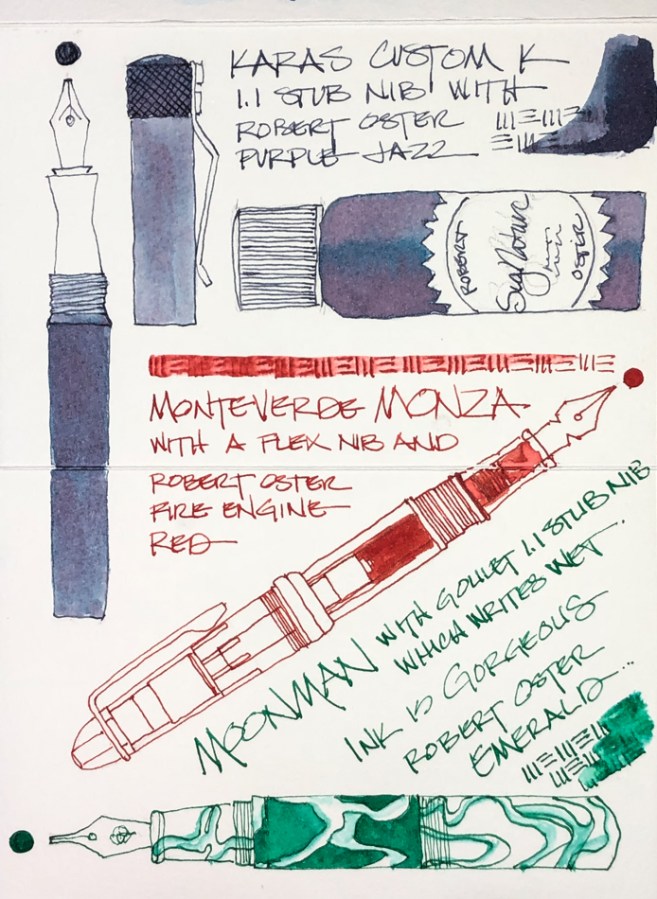 KARAS CUSTOM K
1.1 STUB NIB WITH
ROBERT OSTER
PURPLE JAZZ
ROBERT
Signature
OSTER
MONTEVERDE MONZA
WITH A FLEX NIB AND
ROBERT OSTER
FIRE ENGINE
RED
MOONMAN WITH GOULET 1.1 STUB NIB
WHICH WRITES WET.
INK IS GORGEOUS
ROBERT OSTER
EMERALD...